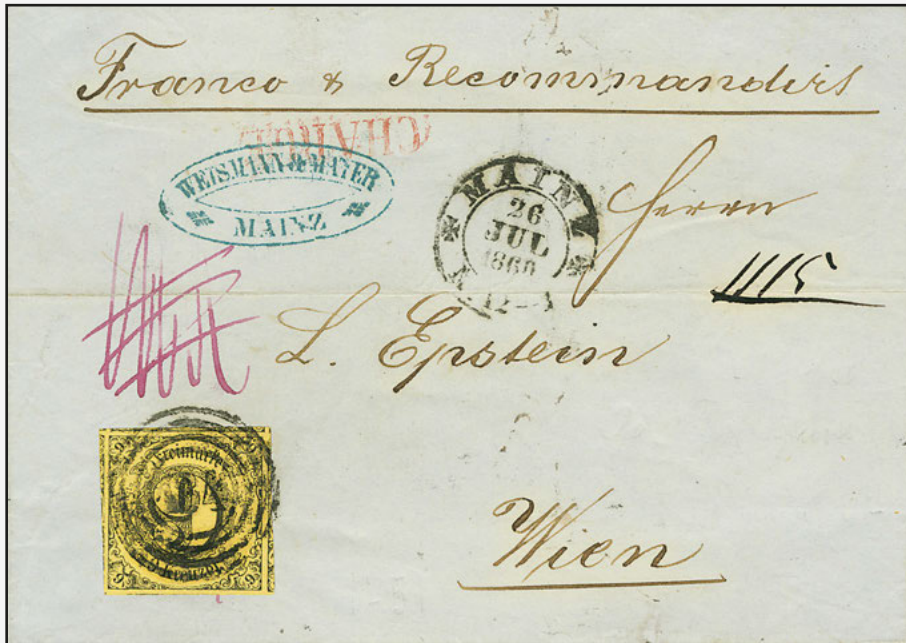 Franco & Recommandirt
CHARGÉ
WEISMANN & MAYER
MAINZ
MAINZ
26
JUL
1860
Herrn
1115
L. Epstein
Freimarke
9 Kreuzer
Wien